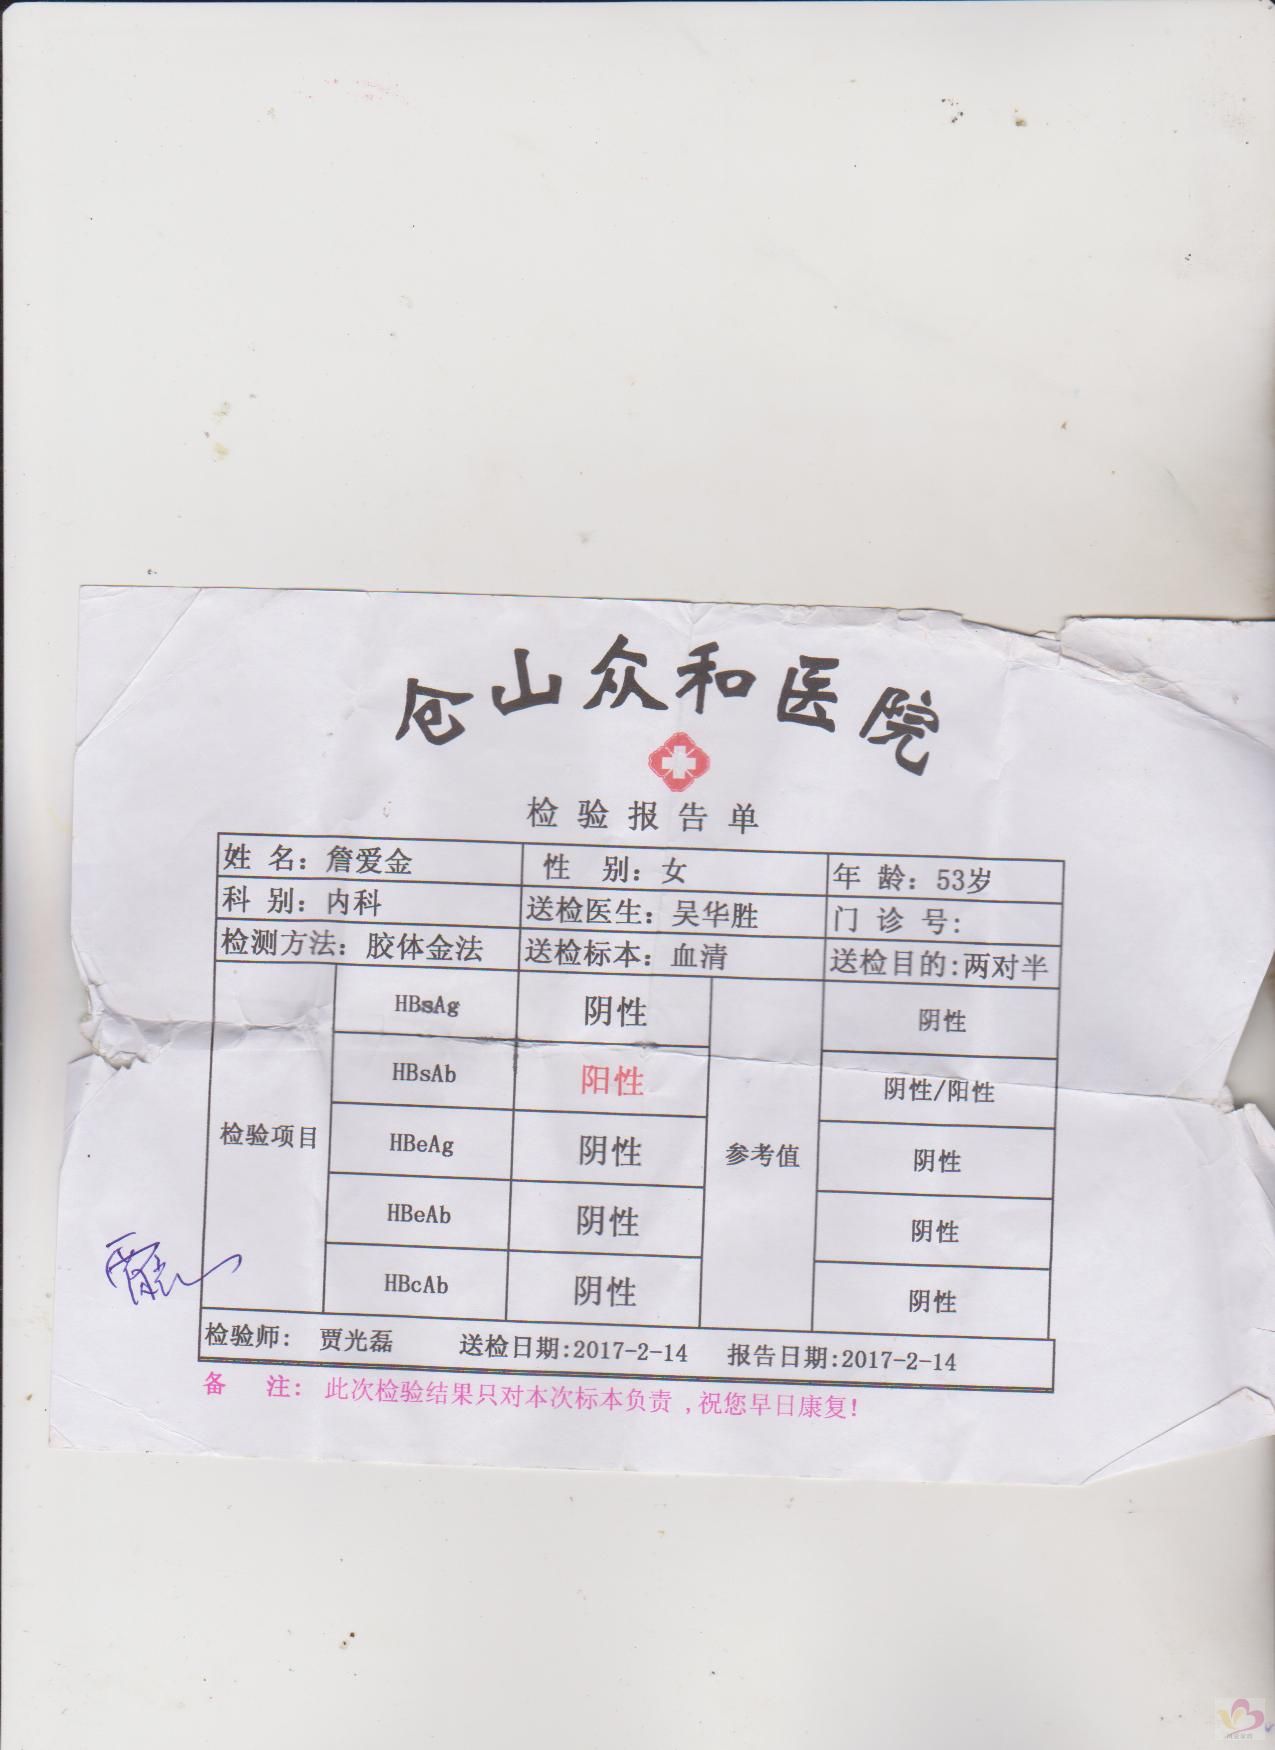 仓山众和医院
检验报告单
姓 名：詹爱金 性 别：女 年 龄：53岁
科 别：内科 送检医生：吴华胜 门 诊 号:
检测方法：胶体金法 送检标本：血清 送检目的:两对半
检验项目 参考值
HBsAg 阴性 阴性
HBsAb 阳性 阴性/阳性
HBeAg 阴性 阴性
HBeAb 阴性 阴性
HBcAb 阴性 阴性
检验师: 贾光磊 送检日期:2017-2-14 报告日期:2017-2-14
备 注: 此次检验结果只对本次标本负责,祝您早日康复!